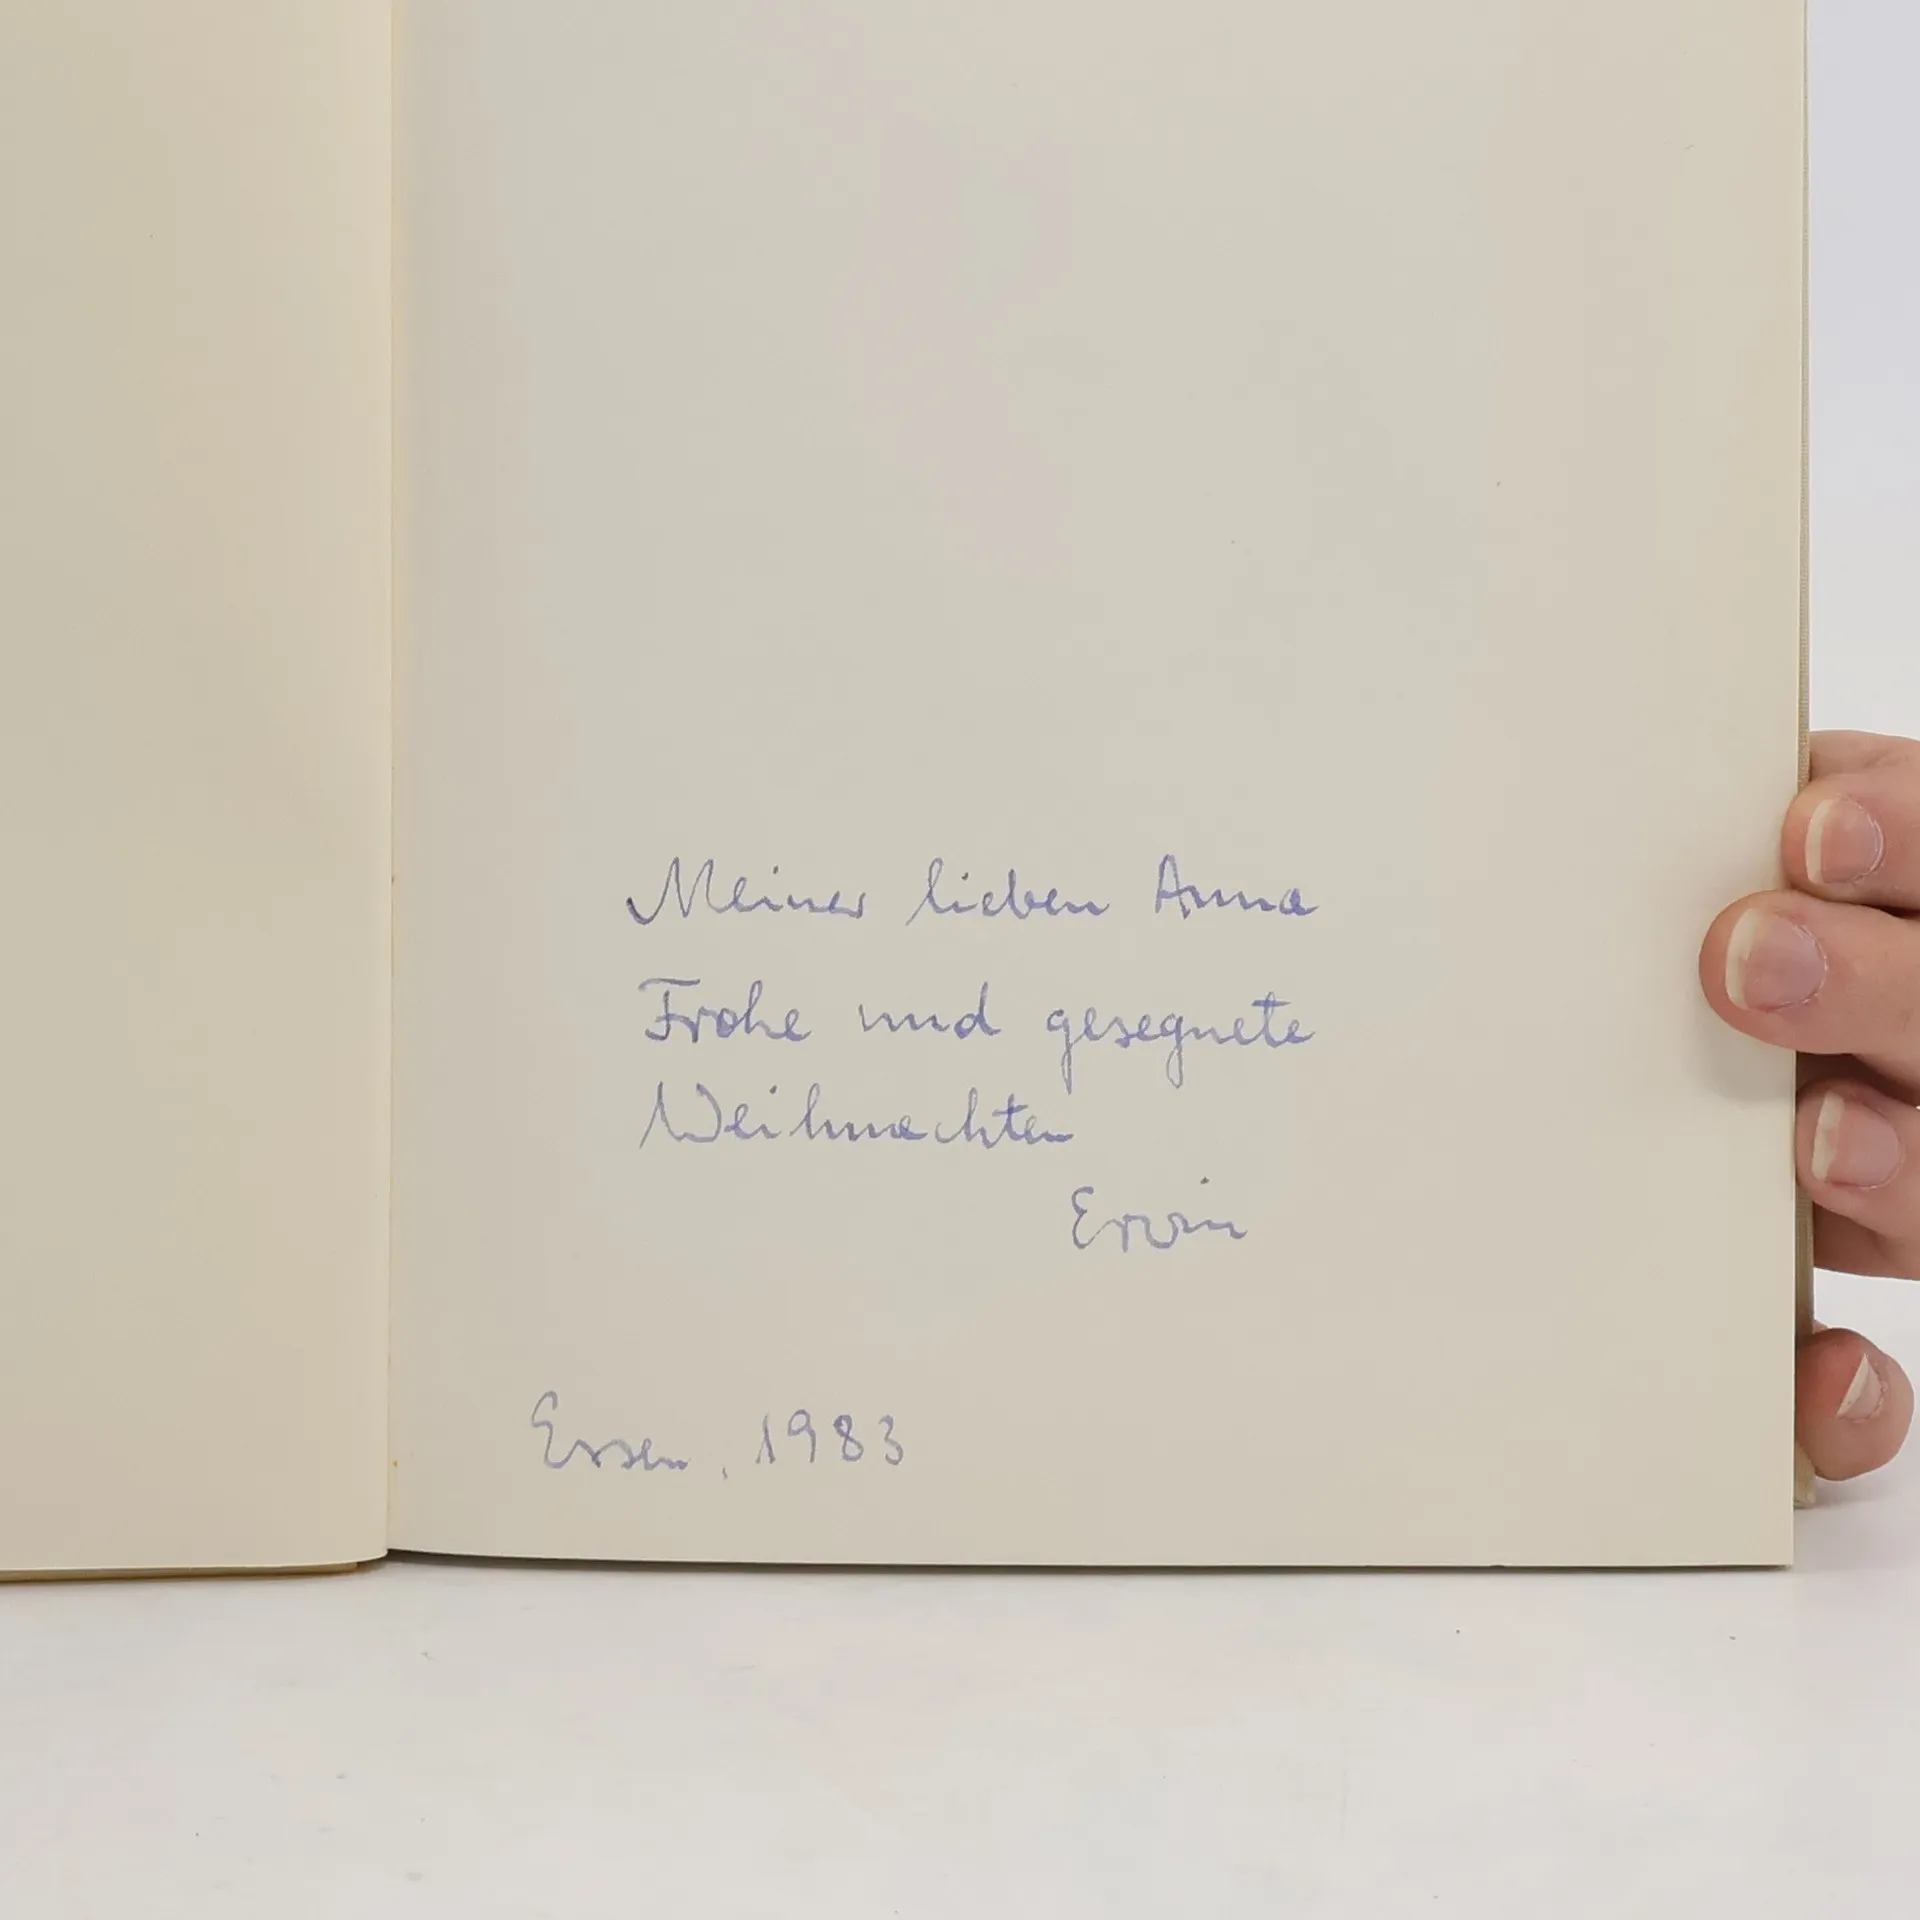 Meiner lieben Anna
Frohe und gesegnete
Weihnachten
Erwin
Essen, 1983